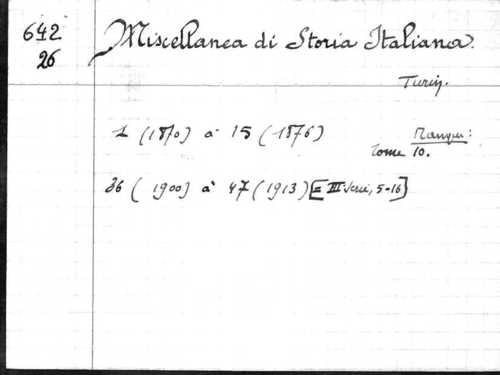 642
26
Miscellanea di Storia Italiana.
Turin.
1 (1870) à 15 (1876)
Manque:
tome 10.
36 (1900) à 47 (1913) [= III Serie, 5-16]